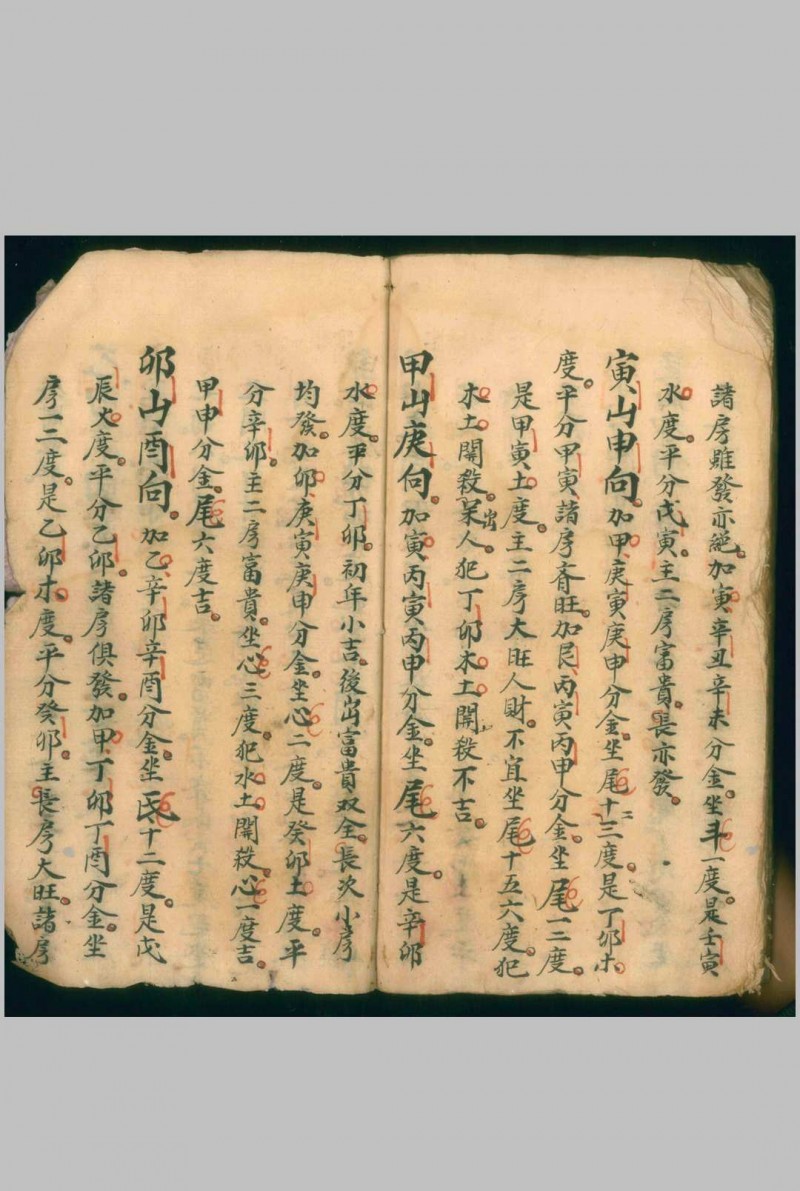 諸房雖發亦絕。加寅辛丑辛未分金。坐斗一度。是壬寅
水度。平分戊寅。主二房富貴。長亦發。
寅山申向。加甲庚寅庚申分金。坐尾十二三度。是丁卯木
度。平分甲寅。諸房齊旺。加艮丙寅丙申分金。坐尾一二度。
是甲寅土度。主二房大旺人財。不宜坐尾十五六度。犯
木土開殺。出呆人。犯丁卯木土開殺不吉。
甲山庚向。加寅丙寅丙申分金。坐尾六度。是辛卯
水度。平分丁卯。初年小吉。後出富貴双全。長次小房
均發。加卯庚寅庚申分金。坐心二度。是癸卯土度。平
分辛卯。主二房富貴。坐心三度。犯水土開殺。心一度吉。
甲申分金。尾六度吉。
卯山酉向。加乙辛卯辛酉分金。坐氐十二度。是戊
辰火度。平分乙卯。諸房俱發。加甲丁卯丁酉分金。坐
房一二度。是乙卯木度。平分癸卯。主長房大旺。諸房